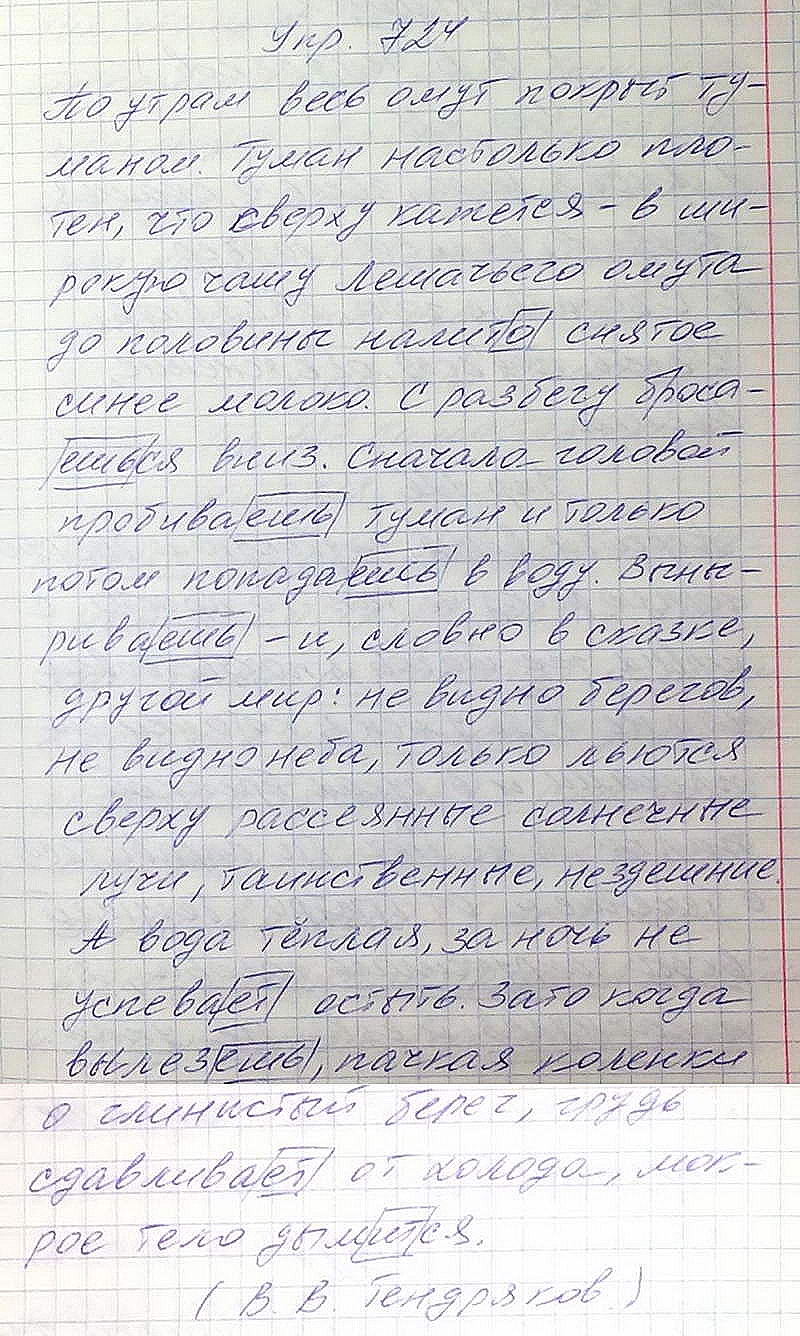 Упр. 724
По утрам весь омут покрыт ту-
маном. Туман настолько пло-
тен, что сверху кажется - в ши-
рокую чашу Лешачьего омута
до половины налито снятое
синее молоко. С разбегу броса-
ешься вниз. Сначала головой
пробиваешь туман и только
потом попадаешь в воду. Выны-
риваешь - и, словно в сказке,
другой мир: не видно берегов,
не видно неба, только льются
сверху рассеянные солнечные
лучи, таинственные, нездешние.
А вода тёплая, за ночь не
успевает остыть. Зато когда
вылезешь, пачкая коленки
о глинистый берег, грудь
сдавливает от холода, мок-
рое тело дымится.
(В. В. Тендряков)